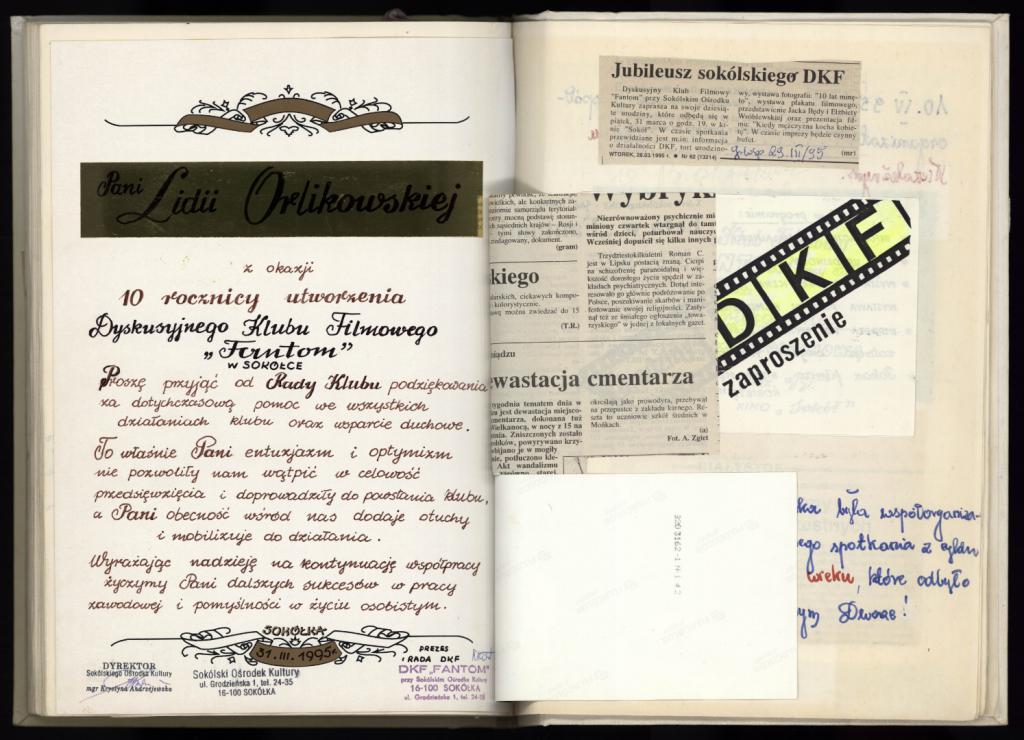 Pani
Lidii Orlikowskiej
z okazji
10 rocznicy utworzenia
Dyskusyjnego Klubu Filmowego
„Fantom”
W SOKÓŁCE
Proszę przyjąć od Rady Klubu podziękowania
za dotychczasową pomoc we wszystkich
działaniach klubu oraz wsparcie duchowe.
To właśnie Pani entuzjazm i optymizm
nie pozwoliły nam wątpić w celowość
przedsięwzięcia i doprowadziły do powstania klubu,
a Pani obecność wśród nas dodaje otuchy
i mobilizuje do działania.
Wyrażając nadzieję na kontynuację współpracy
życzymy Pani dalszych sukcesów w pracy
zawodowej i pomyślności w życiu osobistym.
SOKÓŁKA
31.III.1995r.
DYREKTOR
Sokólskiego Ośrodka Kultury
mgr Krystyna Andrzejewska
Sokólski Ośrodek Kultury
ul. Grodzieńska 1, tel. 24-35
16-100 SOKÓŁKA
PREZES
i RADA DKF
DKF „FANTOM”
przy Sokólskim Ośrodku Kultury
16-100 SOKÓŁKA
ul. Grodzieńska 1, tel. 24-35
Jubileusz sokólskiego DKF
Dyskusyjny Klub Filmowy
"Fantom" przy Sokólskim Ośrodku
Kultury zaprasza na swoje dziesią-
te urodziny, które odbędą się w
piątek, 31 marca o godz. 19, w ki-
nie "Sokół". W czasie spotkania
przewidziane jest m.in: informacja
o działalności DKF, tort urodzino-
wy, wystawa fotografii: "10 lat minę-
ło", wystawa plakatu filmowego,
przedstawienie Jacka Hędy i Elżbiety
Wróblewskiej oraz prezentacja fil-
mu: "Kiedy mężczyzna kocha kobie-
tę". W czasie imprezy będzie czynny
bufet.
(mr)
WTOREK, 28.03.1995 r. ● Nr 62 (13214)
29.III/95
wielkich, ale konkretnych za-
poziomie samorządu terytorial-
orzy mocną podstawę stosun-
h sąsiednich krajów – Rosji i
tymi słowy zakończono,
redagowany, dokument.
(gram)
kiego
larskich, ciekawych kompo-
kolorystycznie.
awę można zwiedzać do 15
(T.R.)
Wybryk
Niezrównoważony psychicznie mi
miniony czwartek wtargnął do tam
wśród dzieci, poturbował nauczyc
Wcześniej dopuścił się kilku innych
Trzydziestokilkuletni Roman C.
jest w Lipsku postacią znaną. Cierpi
na schizofrenię paranoidalną i wię-
kszość dorosłego życia spędził w za-
kładach psychiatrycznych. Dotąd inte-
resowało go głównie podróżowanie po
Polsce, poszukiwanie skarbów i mani-
festowanie swojej religijności. Zasły-
nął też ze śmiałego ogłoszenia „towa-
rzyskiego” w jednej z lokalnych gazet.
niądzu
ewastacja cmentarza
tygodnia tematem dnia w
ku jest dewastacja miejsco-
mentarza, dokonana tuż
Wielkanocą, w nocy z 15 na
nia. Zniszczonych zostało
obków, powyrywano krzy-
wbijano je w mogiły
nie, potłuczono kle-
Akt wandalizmu
zarówno starej
określają jako prowodyra, przebywał
na przepustce z zakładu karnego. Re-
szta to uczniowie szkół średnich w
Mońkach.
(a)
Fot. A. Zgiet
DKF
zaproszenie
była współorganiza-
ego spotkania z cyklu
wieku, które odbyło
ym Dworze!